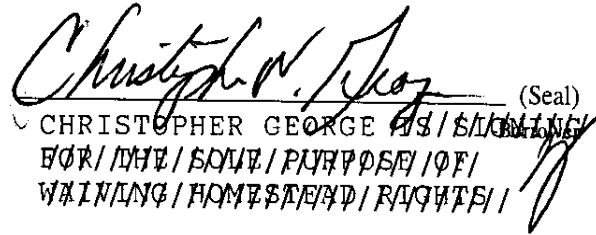 Christopher N. Georg
(Seal)
CHRISTOPHER GEORGE IS SIGNING Borrower
FOR THE SOLE PURPOSE OF
WAIVING HOMESTEAD RIGHTS